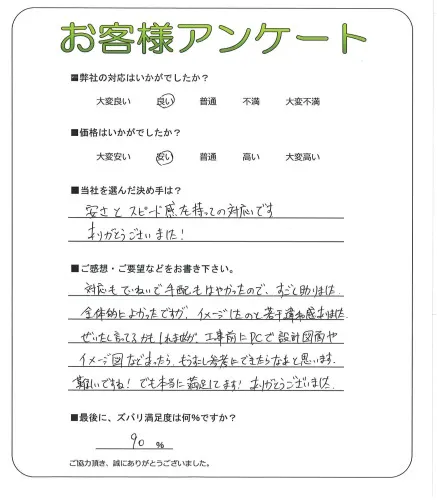 お客様アンケート
■弊社の対応はいかがでしたか?
大変良い 良い 普通 不満 大変不満
■価格はいかがでしたか?
大変安い 安い 普通 高い 大変高い
■当社を選んだ決め手は?
安さと スピード感を持っての対応です
ありがとうございました!
■ご感想・ご要望などをお書き下さい。
対応もていねいで手配もはやかったので、すごく助りました
全体的によかったですが、イメージしたのと若干違和感ありました
ぜいたく言ってるかもしれませんが、工事前にPCで設計図面や
イメージ図などあったら、もう少し参考にできたらなあと思います.
難しいですね! でも本当に満足してます! ありがとうございました
■最後に、ズバリ満足度は何%ですか?
90 %
ご協力頂き、誠にありがとうございました。